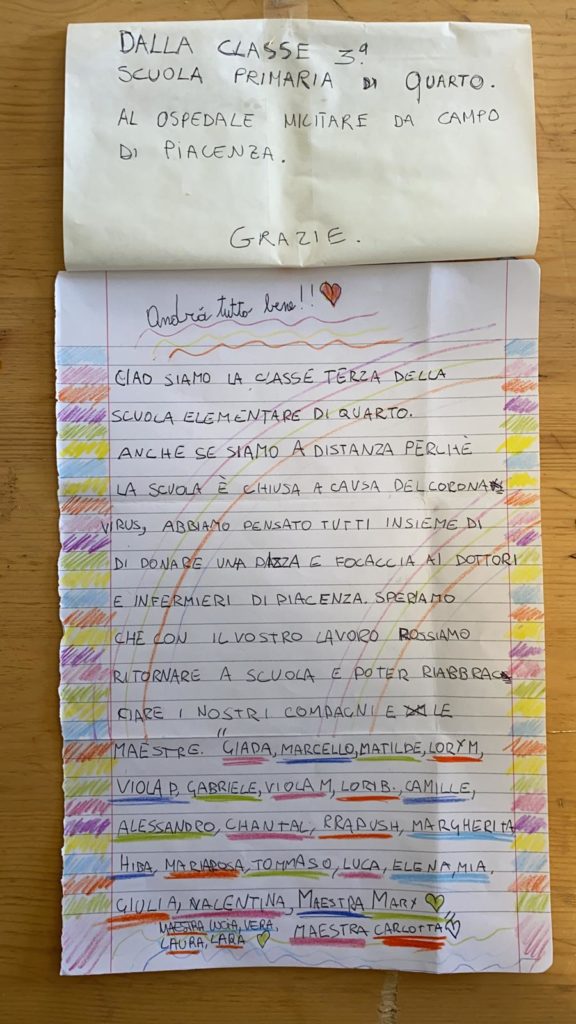 DALLA CLASSE 3ª
SCUOLA PRIMARIA DI QUARTO.
AL OSPEDALE MILITARE DA CAMPO
DI PIACENZA.
GRAZIE.
Andrá tutto bene!!
CIAO SIAMO LA CLASSE TERZA DELLA
SCUOLA ELEMENTARE DI QUARTO.
ANCHE SE SIAMO A DISTANZA PERCHÈ
LA SCUOLA È CHIUSA A CAUSA DEL CORONA
VIRUS, ABBIAMO PENSATO TUTTI INSIEME DI
DI DONARE UNA PIZZA E FOCACCIA AI DOTTORI
E INFERMIERI DI PIACENZA. SPERIAMO
CHE CON IL VOSTRO LAVORO POSSIAMO
RITORNARE A SCUOLA E POTER RIABBRAC
CIARE I NOSTRI COMPAGNI E LE
MAESTRE. "GIADA, MARCELLO, MATILDE, LORY M,
VIOLA P, GABRIELE, VIOLA M, LORI B., CAMILLE,
ALESSANDRO, CHANTAL, RRAPUSH, MARGHERITA
HIBA, MARIAROSA, TOMMASO, LUCA, ELENA, MIA,
GIULIA, VALENTINA, MAESTRA MARY
MAESTRA LUCIA, VERA,
LAURA, LARA MAESTRA CARLOTTA"